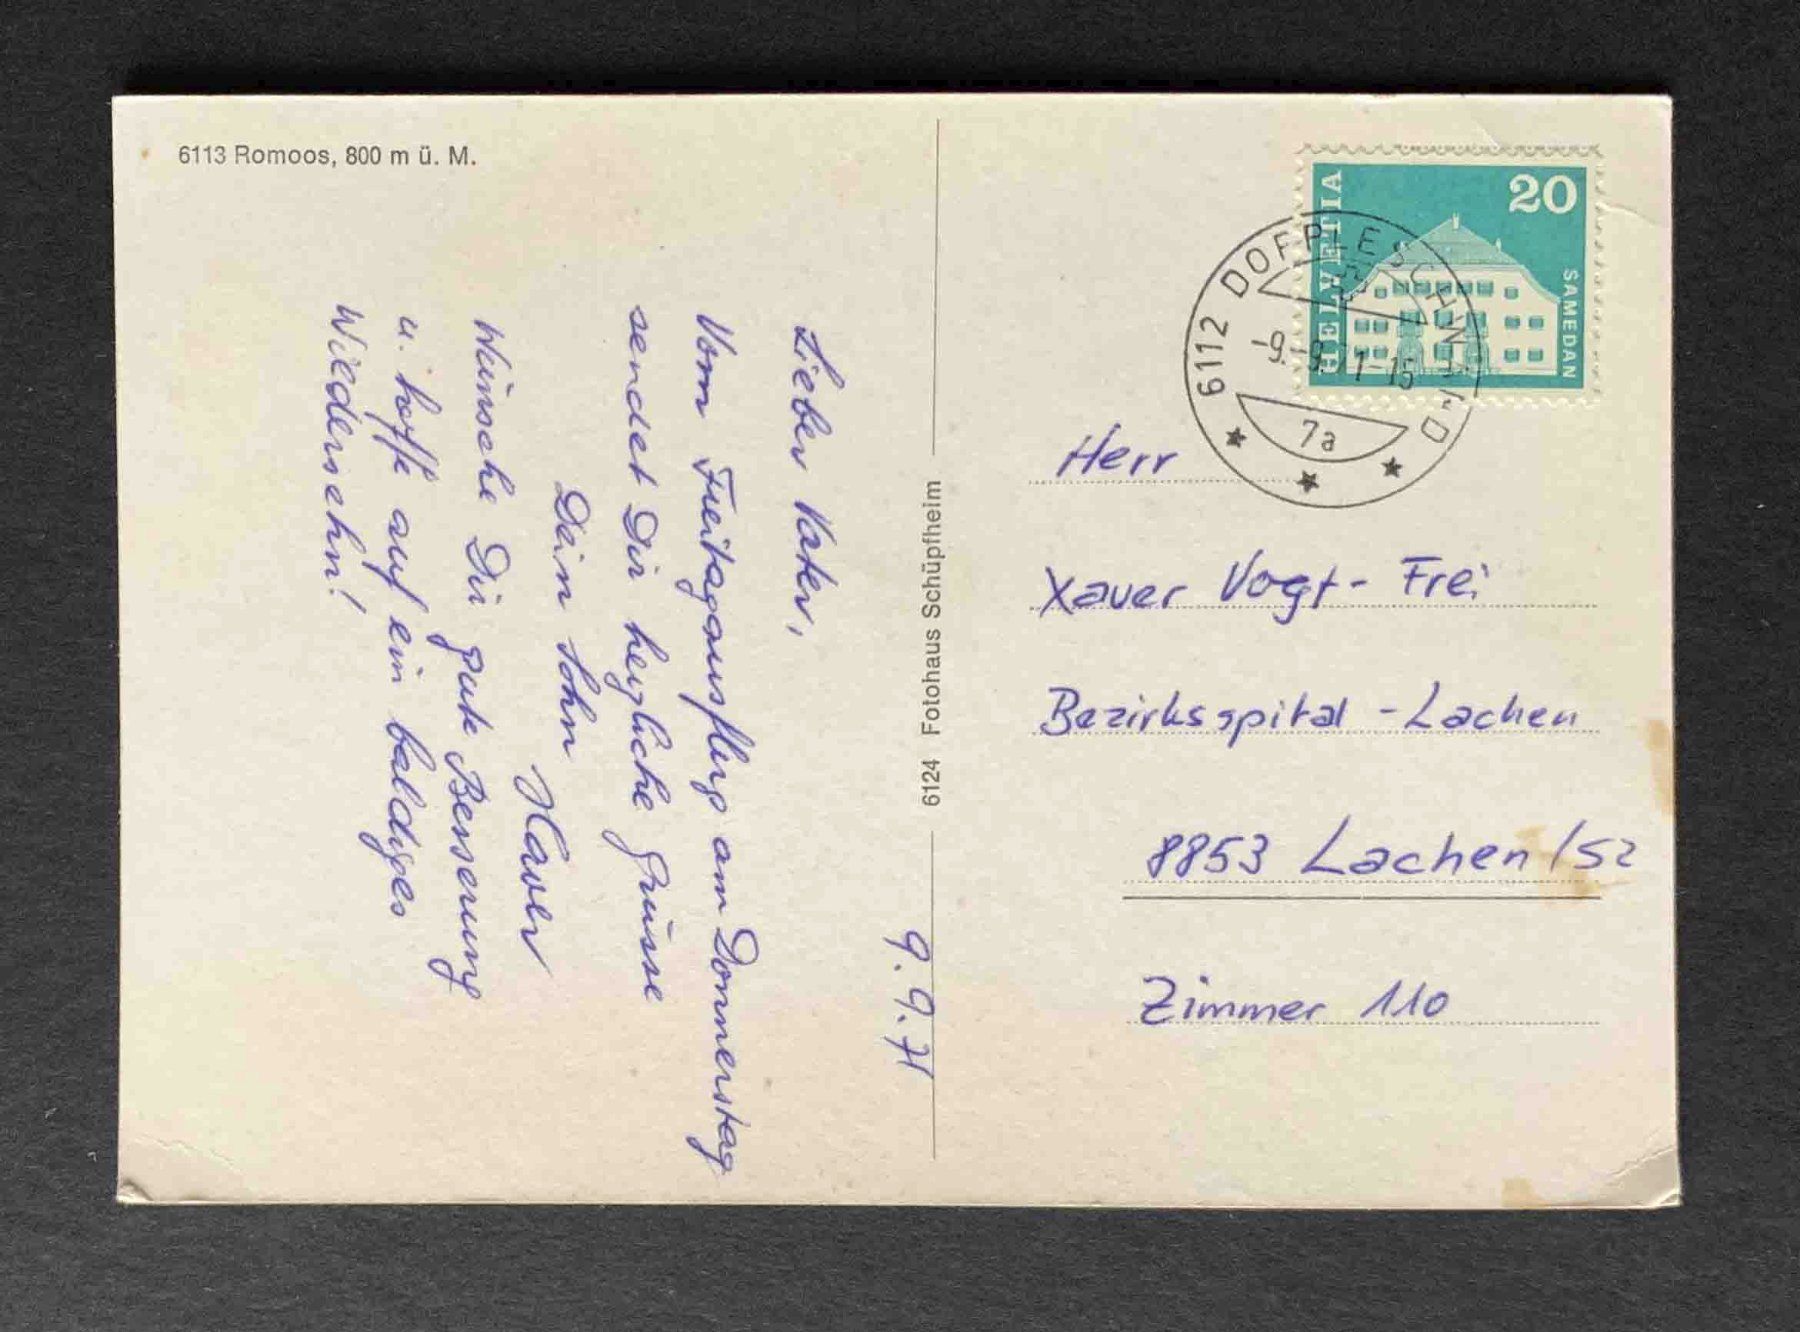 6113 Romoos, 800 m ü. M.
9.9.71
Lieber Vater,
Vom Freitagausflug am Donnerstag
sendet Dir herzliche Grüsse
Dein Sohn
Xaver
Wünsche Dir gute Besserung
u. hoffe auf ein baldiges
Wiedersehn!
6124 Fotohaus Schüpfheim
HELVETIA
20
SAMEDAN
6112
-9.-9.71-15
7a
Herr
Xaver Vogt-Frei
Bezirksspital-Lachen
8853 Lachen/SZ
Zimmer 110